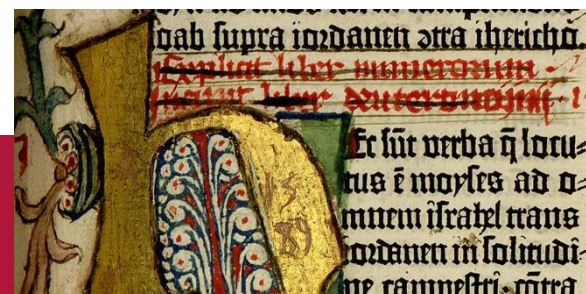 oab supra iordanen ɔtra ihericho
Explicit liber numerorum
Incipit liber deuteronomii
Et sūt verba q̄ locu-
tus ē moyses ad o-
mnem israhel trans
ordanen in solitudi-
ne campestri cōtra
15
89